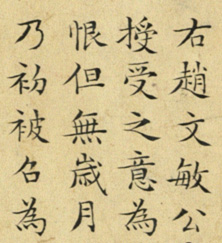 右趙文敏公
授受之意為
恨但無歲月
乃初被召為